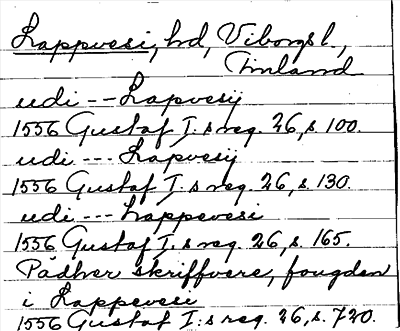 Lappvesi, hd, Viborgs l.,
Finland
udi -- Lapvesij
1556 Gustaf I:s reg. 26, s. 100.
udi --- Lapvesij
1556 Gustaf I:s reg. 26, s. 130.
udi --- Lappevesi
1556 Gustaf I:s reg. 26, s. 165.
Pådher skriffvere, fougden
i Lappevesi
1556 Gustaf I:s reg. 26, s. 720.